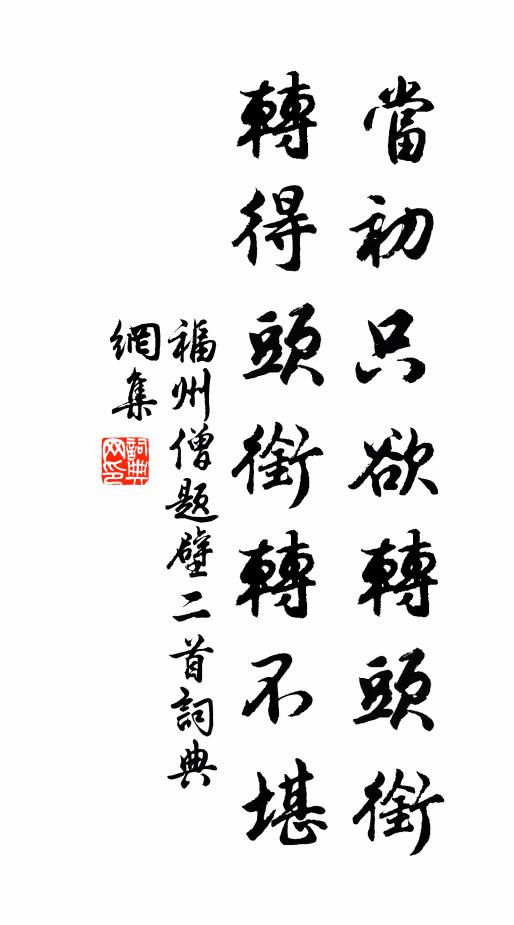 當初只欲轉頭銜
轉得頭銜轉不堪
福州僧題壁二首詞典
網集
詞典
网印